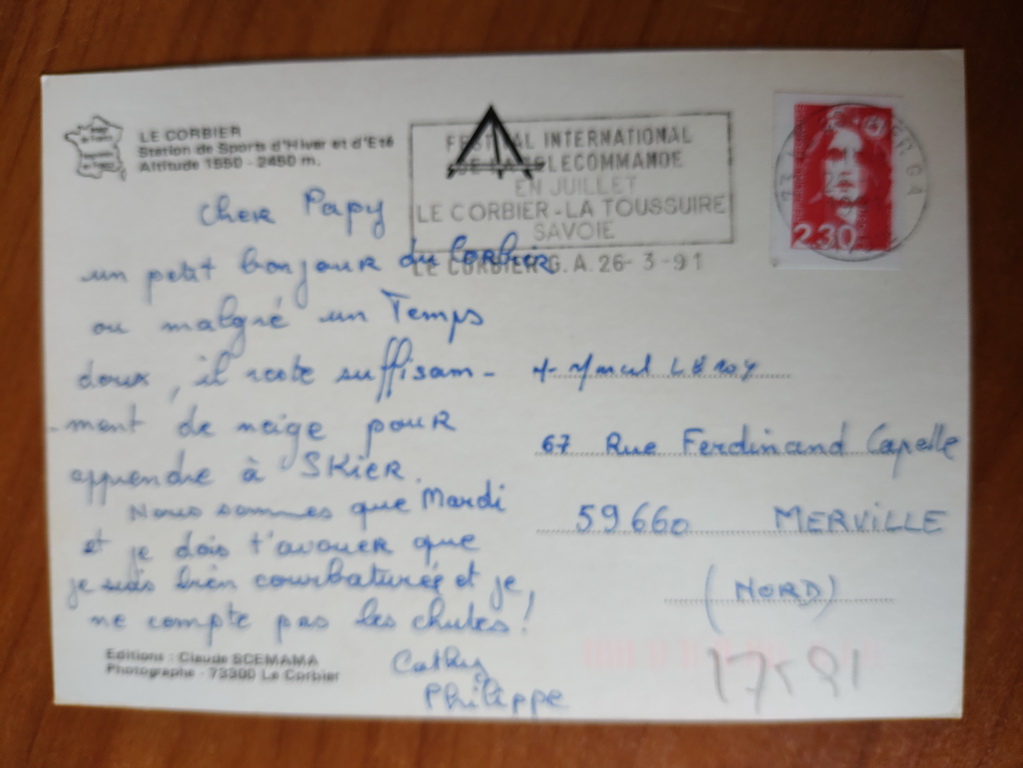 LE CORBIER
Station de Sports d'Hiver et d'Eté
Altitude 1550 - 2450 m.
FESTIVAL INTERNATIONAL
DE LA TELECOMMANDE
EN JUILLET
LE CORBIER - LA TOUSSUIRE
SAVOIE
LE CORBIER G. A. 26- 3 -91
2,30
Cher Papy
un petit bonjour du Corbier
ou malgré un Temps
doux, il reste suffisam-
-ment de neige pour
apprendre à Skier.
Nous sommes que Mardi
et je dois t'avouer que
je suis bien courbaturée et je
ne compte pas les chutes!
Cathy
Philippe
Marcel LEROY
67 Rue Ferdinand Capelle
59660 MERVILLE
(NORD)
Editions : Claude SCEMAMA
Photographe - 73300 Le Corbier